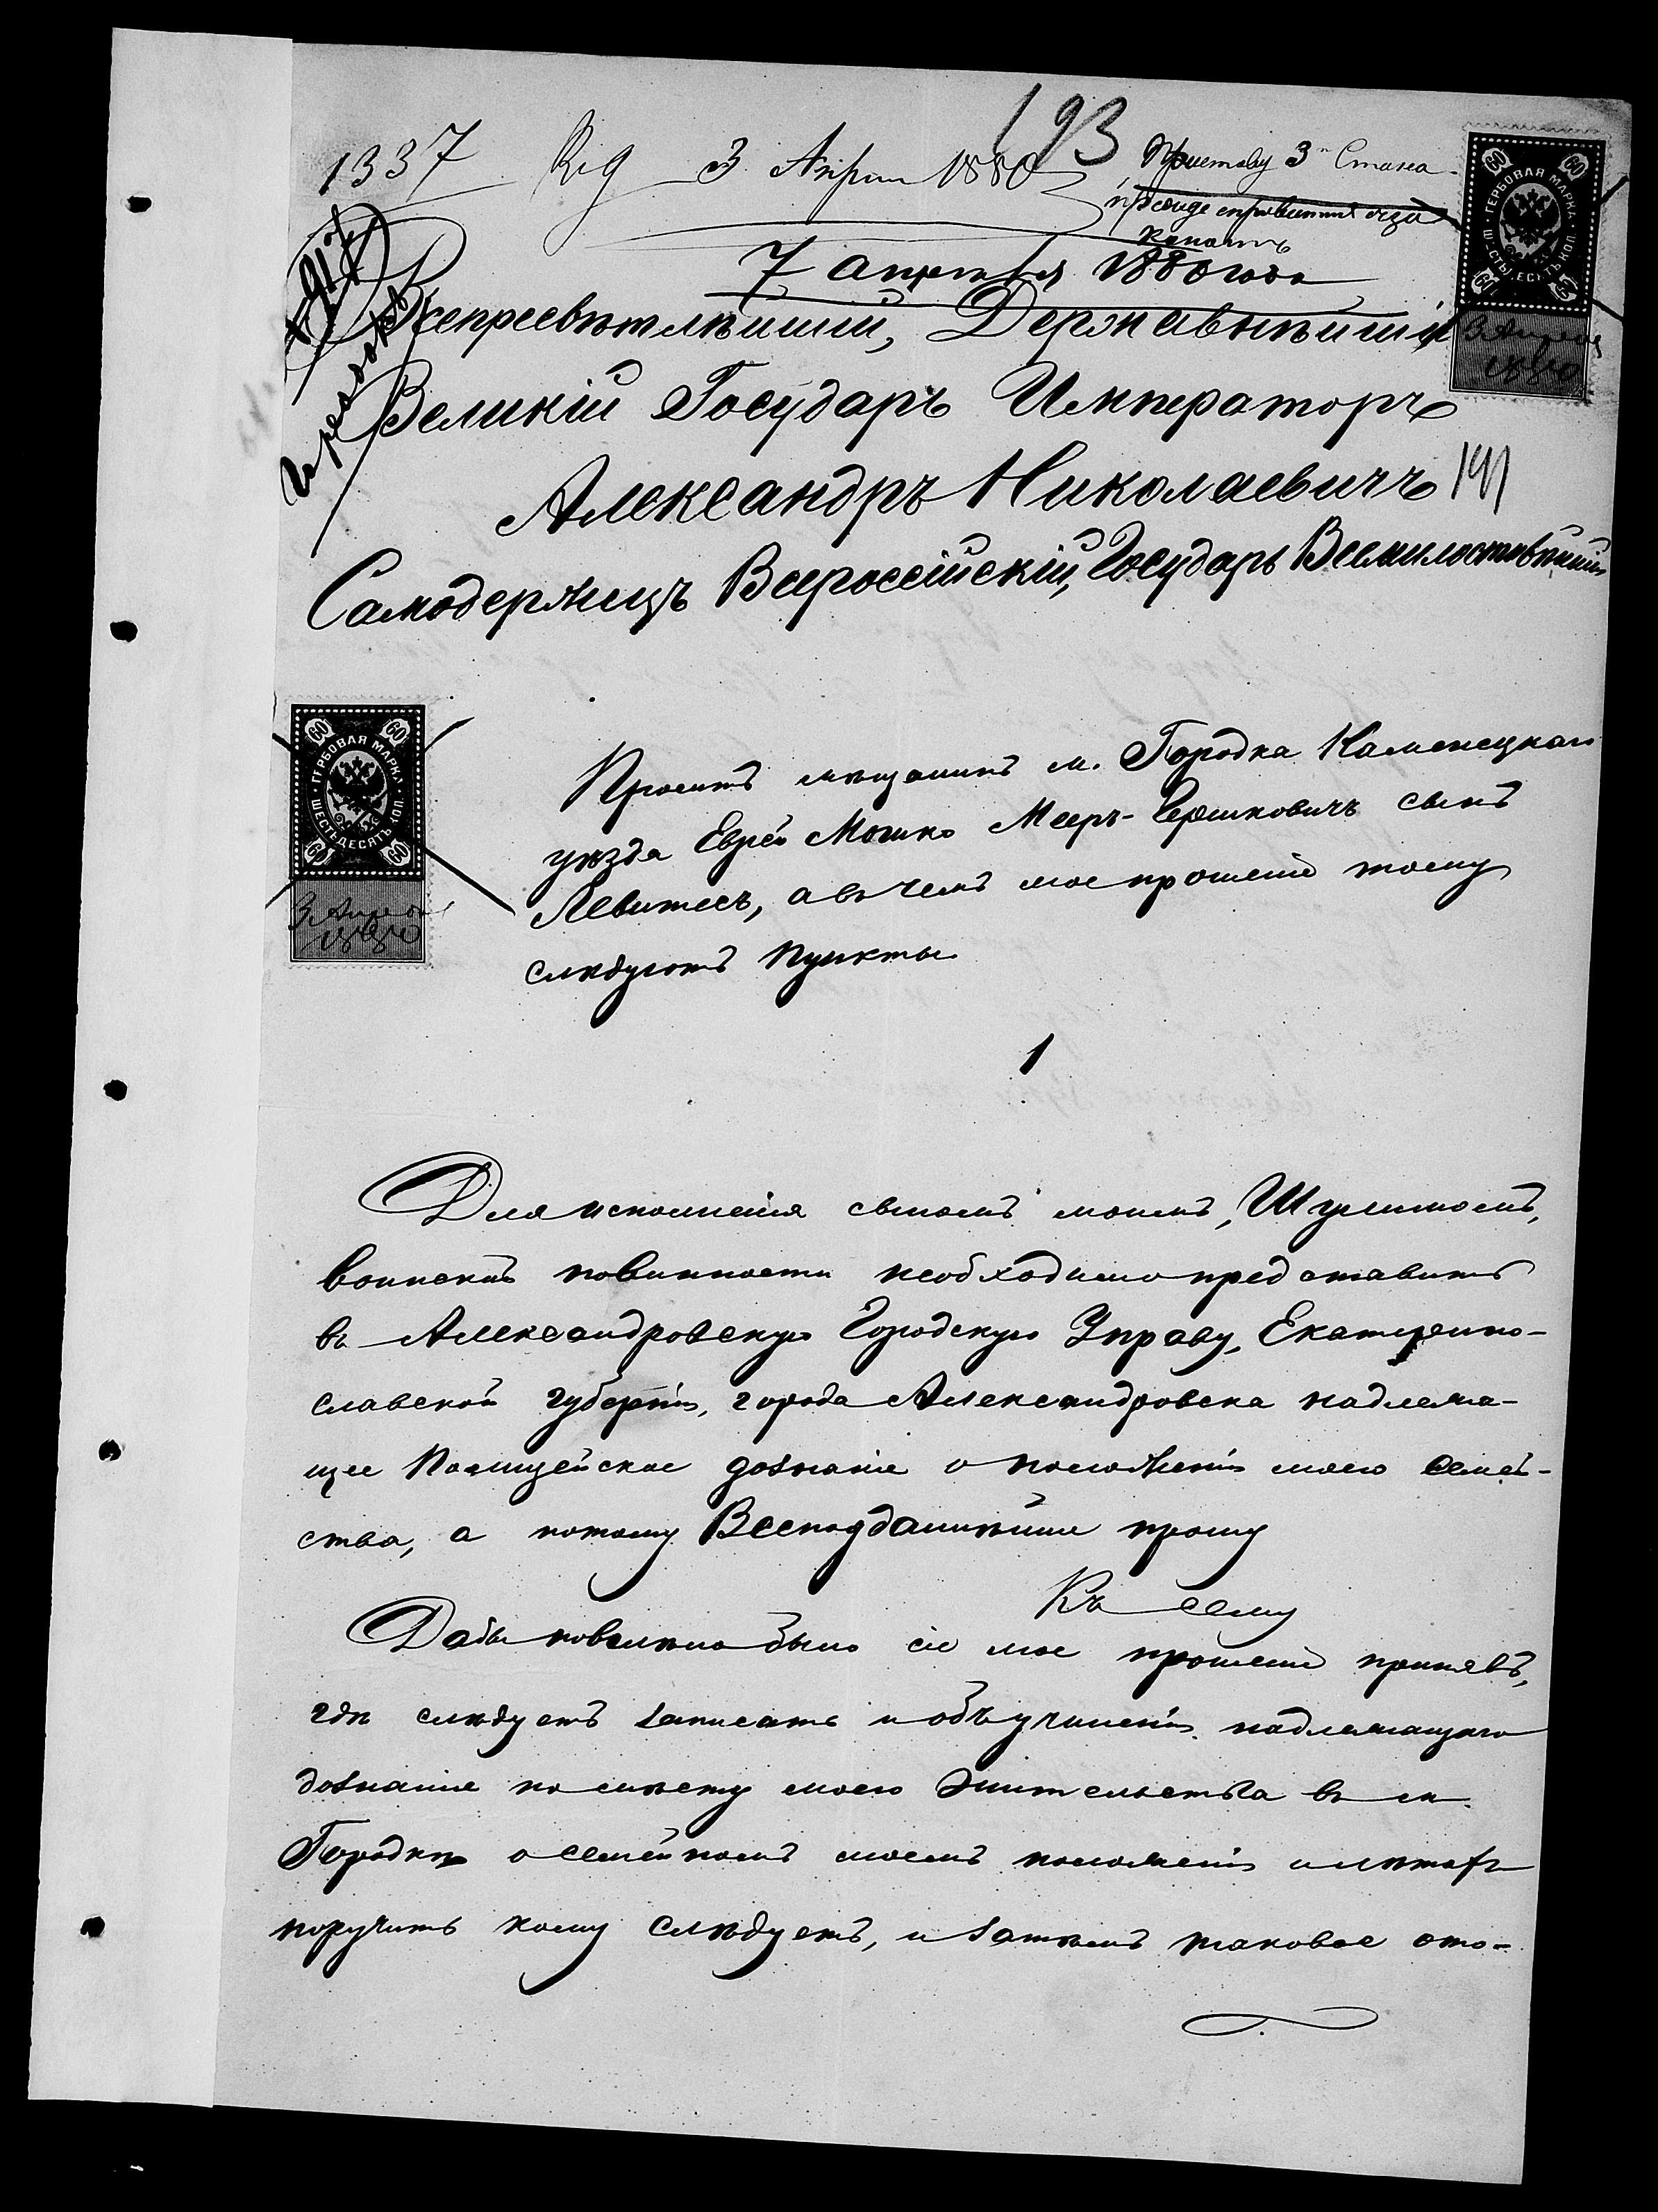 193
1337 3 Апрѣл 1880 Приставу 3 Стана
7 апрѣля 1880 года
Всепресвѣтлѣйшій, Державнѣйшій
Великій Государь Императоръ
Александръ Николаевичъ 191
Самодержецъ Всероссійскій, Государь Всемилостивѣйшій
ГЕРБОВАЯ МАРКА
ШЕСТЬДЕСЯТЪ КОП.
60 60 60 60
3 Апрѣля
1880
Проситъ мѣщанинъ м. Городка Каменецкаго
уѣзда Еврей Мошко Мееръ-Гершковичъ сынъ
Левитесъ, а въ чемъ мое прошеніе тому
слѣдуютъ пункты
ГЕРБОВАЯ МАРКА
ШЕСТЬДЕСЯТЪ КОП.
60 60 60 60
3 Апрѣля
1880
1
Для исполненія сыномъ моимъ, Шулимомъ,
воинской повинности необходимо представить
въ Александровскую Городскую Управу, Екатерино-
славской губерніи, города Александровска надлежа-
щее Полицейское дознаніе о положеніи моего семей-
ства, а потому Всеподданнѣйше прошу
Къ сему
Дабы повелѣно было сіе мое прошеніе принявъ,
гдѣ слѣдуетъ записать и объ учиненіи надлежащаго
дознаніе по мѣсту моего жительства въ м.
Городкѣ о семейномъ моемъ положеніи и лѣтахъ
поручить кому слѣдуетъ, и затѣмъ таковое ото-